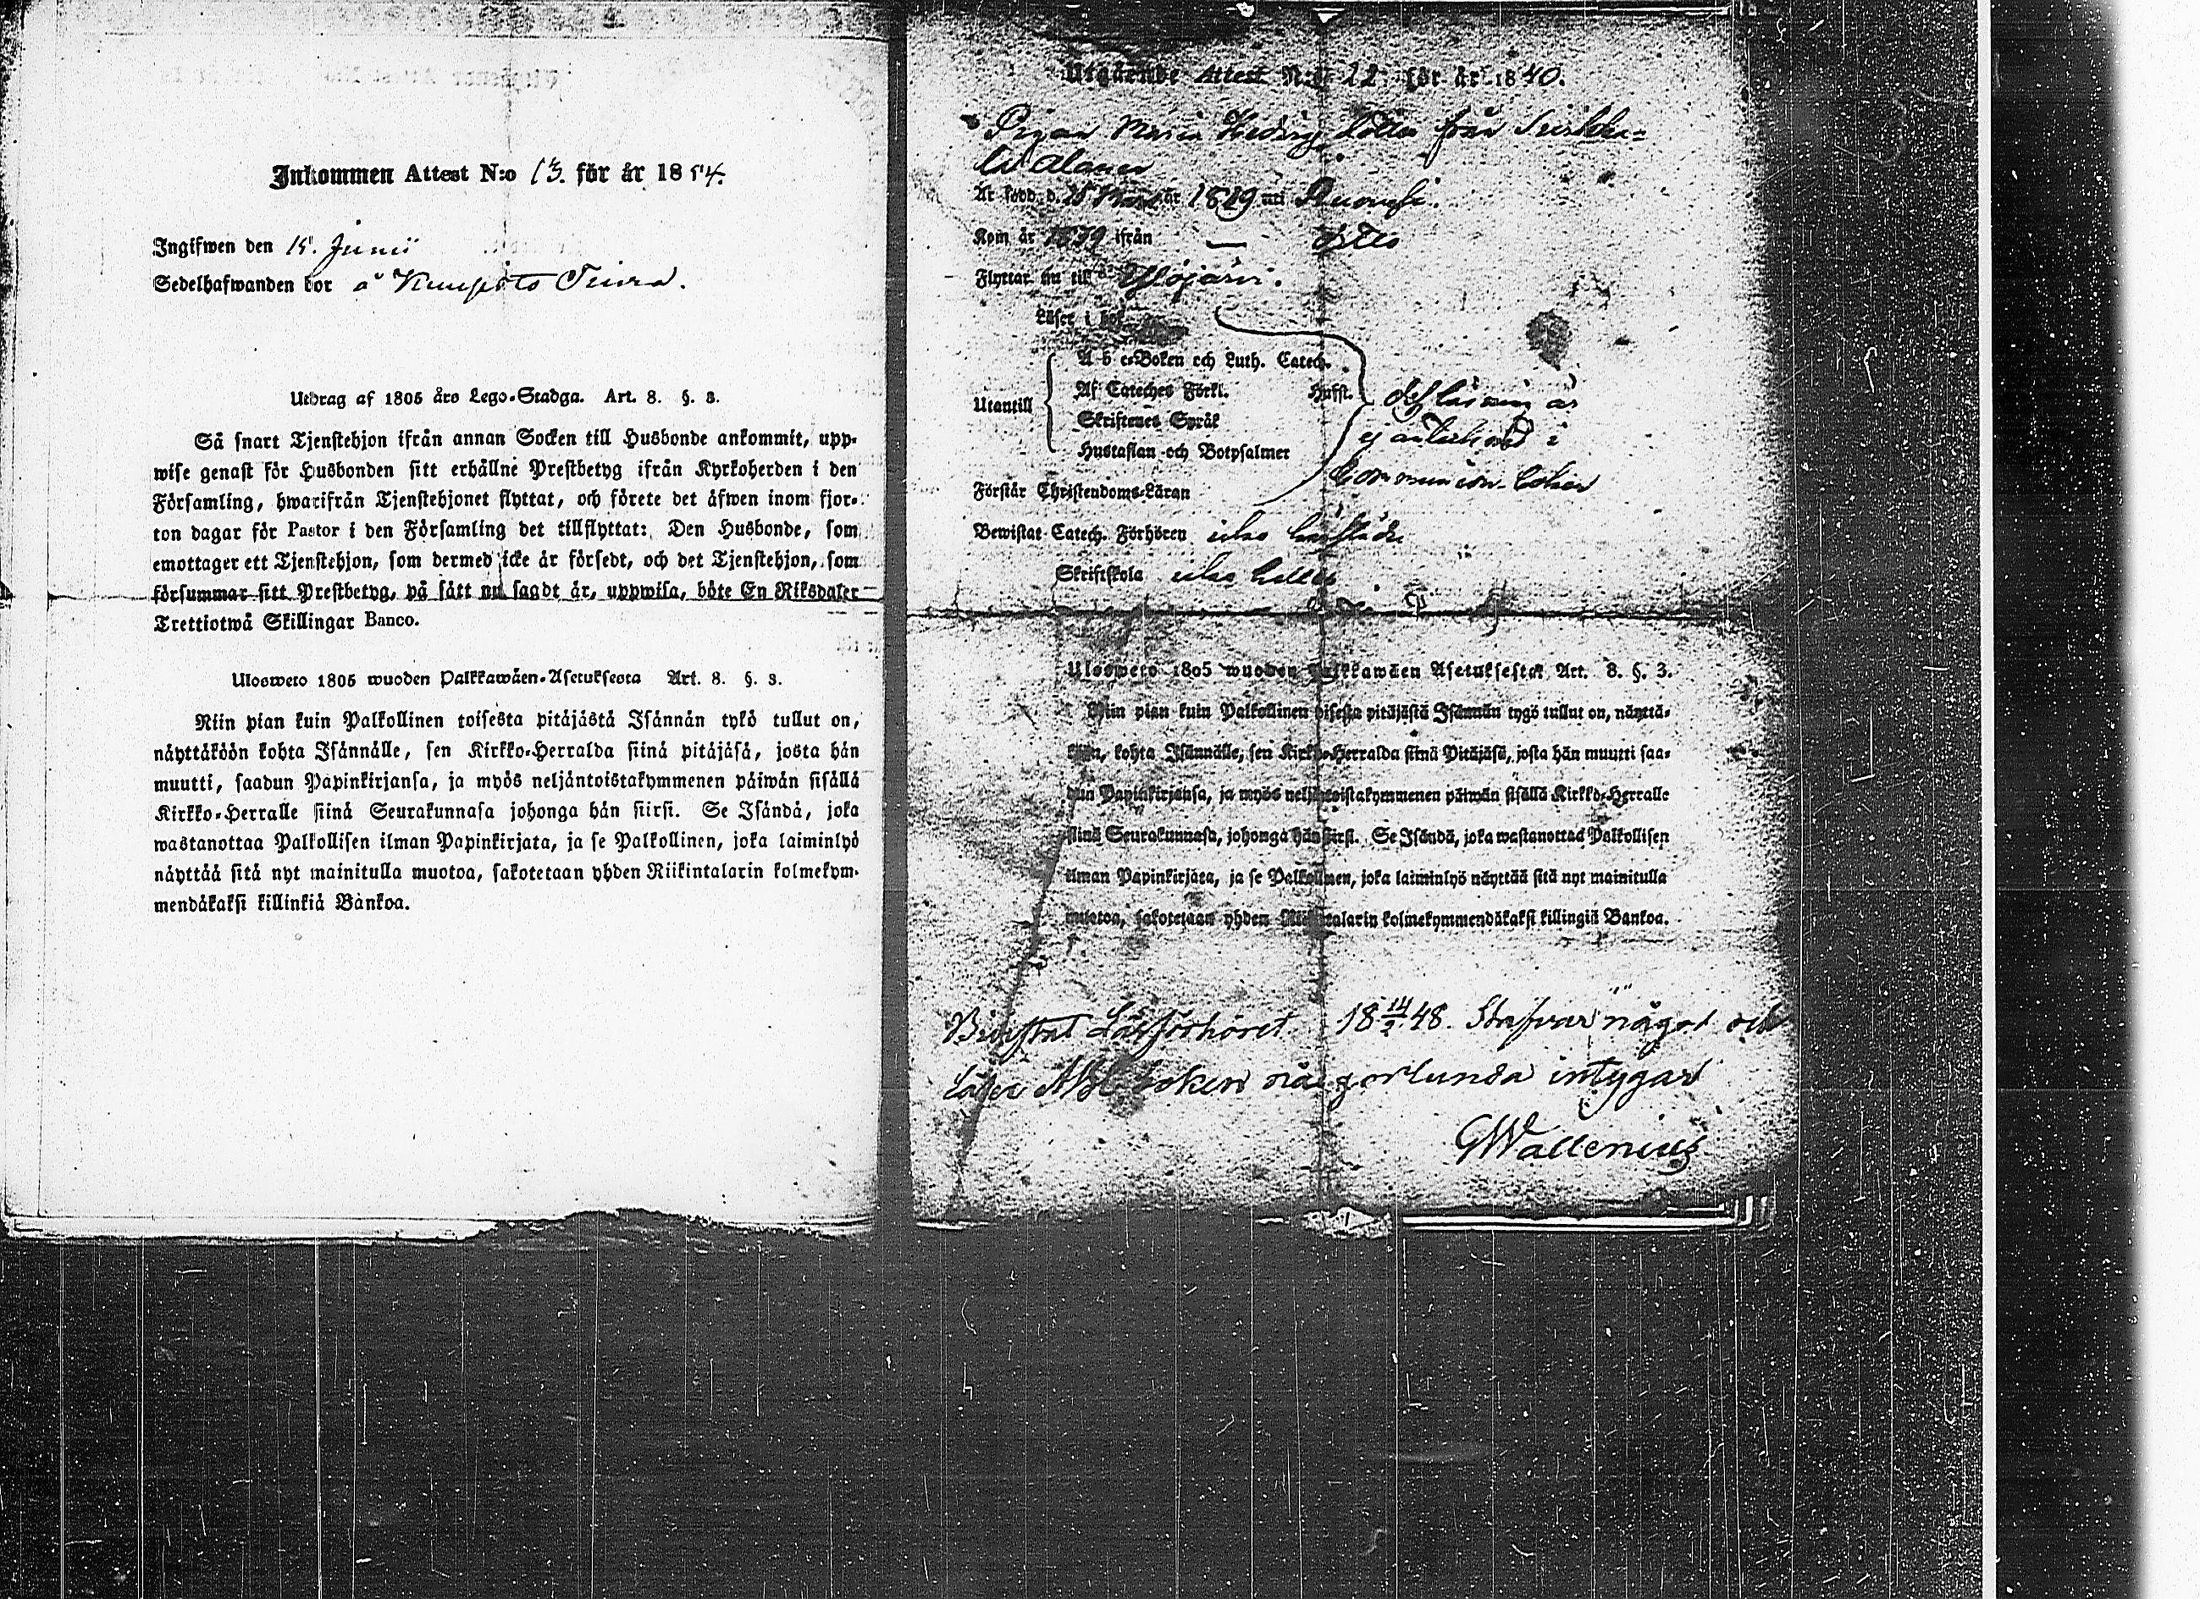 Inkommen Attest N:o 13. för år 1854.
Ingifwen den 15. Junii
Sedelhafwanden bor å
Utdrag af 1805 års Lego-Stadga. Art. 8. §. 3.
Så snart Tjenstehjon ifrån annan Socken till Husbonde ankommit, upp-
wise genast för Husbonden sitt erhållne Prestbetyg ifrån Kyrkoherden i den
Församling, hwarifrån Tjenstehjonet flyttat, och förete det äfwen inom fjor-
ton dagar för Pastor i den Församling det tillflyttat: Den Husbonde, som
emottager ett Tjenstehjon, som dermed icke är försedt, och det Tjenstehjon, som
försummar sitt Prestbetyg, på sätt nu sagdt är, uppwisa, böte En Riksdaler
Trettiotwå Skillingar Banco.
Ulosweto 1805 wuoden Palkkawäen-Asetuksesta Art. 8. §. 3.
Niin pian kuin Palkollinen toisesta pitäjästä Isännän tykö tullut on,
näyttäköön kohta Isännälle, sen Kirkko-Herralda siinä pitäjäsä, josta hän
muutti, saadun Papinkirjansa, ja myös neljäntoistakymmenen päiwän sisällä
Kirkko-Herralle siinä Seurakunnasa johonga hän siirsi. Se Isändä, joka
wastanottaa Palkollisen ilman Papinkirjata, ja se Palkollinen, joka laiminlyö
näyttää sitä nyt mainitulla muotoa, sakotetaan yhden Riikintalarin kolmekym-
mendäkaksi killinkiä Bankoa.
Utgående Attest N:o 22 för år 1840.
Pigan Maria Hedvig från
Är född d. 1819 uti
Kom år 1839 ifrån
Flyttar nu till Ylöjärvi.
Läser i bok
A b c-Boken och Luth. Catech.
Af Cateches Förkl. Husst.
Utantill
Skriftenes Språk
Hustaflan och Botpsalmer
är
ej antecknad i
Communion boken
Förstår Christendoms-Läran
Bewistat Catech. Förhören
Skriftskola
Ulosweto 1805 wuoden Palkkawäen Asetuksesta Art. 8. §. 3.
Niin pian kuin Palkollinen toisesta pitäjästä Isännän tygö tullut on, näyttä-
köön, kohta Isännälle, sen Kirkko-Herralda siinä Pitäjäsä, josta hän muutti saa-
dun Papinkirjansa, ja myös neljäntoistakymmenen päiwän sisällä Kirkko-Herralle
siinä Seurakunnasa, johonga hän siirsi. Se Isändä, joka wastanottaa Palkollisen
ilman Papinkirjata, ja se Palkollinen, joka laiminlyö näyttää sitä nyt mainitulla
muotoa, sakotetaan yhden Riikintalarin kolmekymmendäkaksi killingiä Bankoa.
Bevistat Läsförhöret 18 14/2 48. Stafvar något och
Läser ABC boken någorlunda intygar
GWallenius